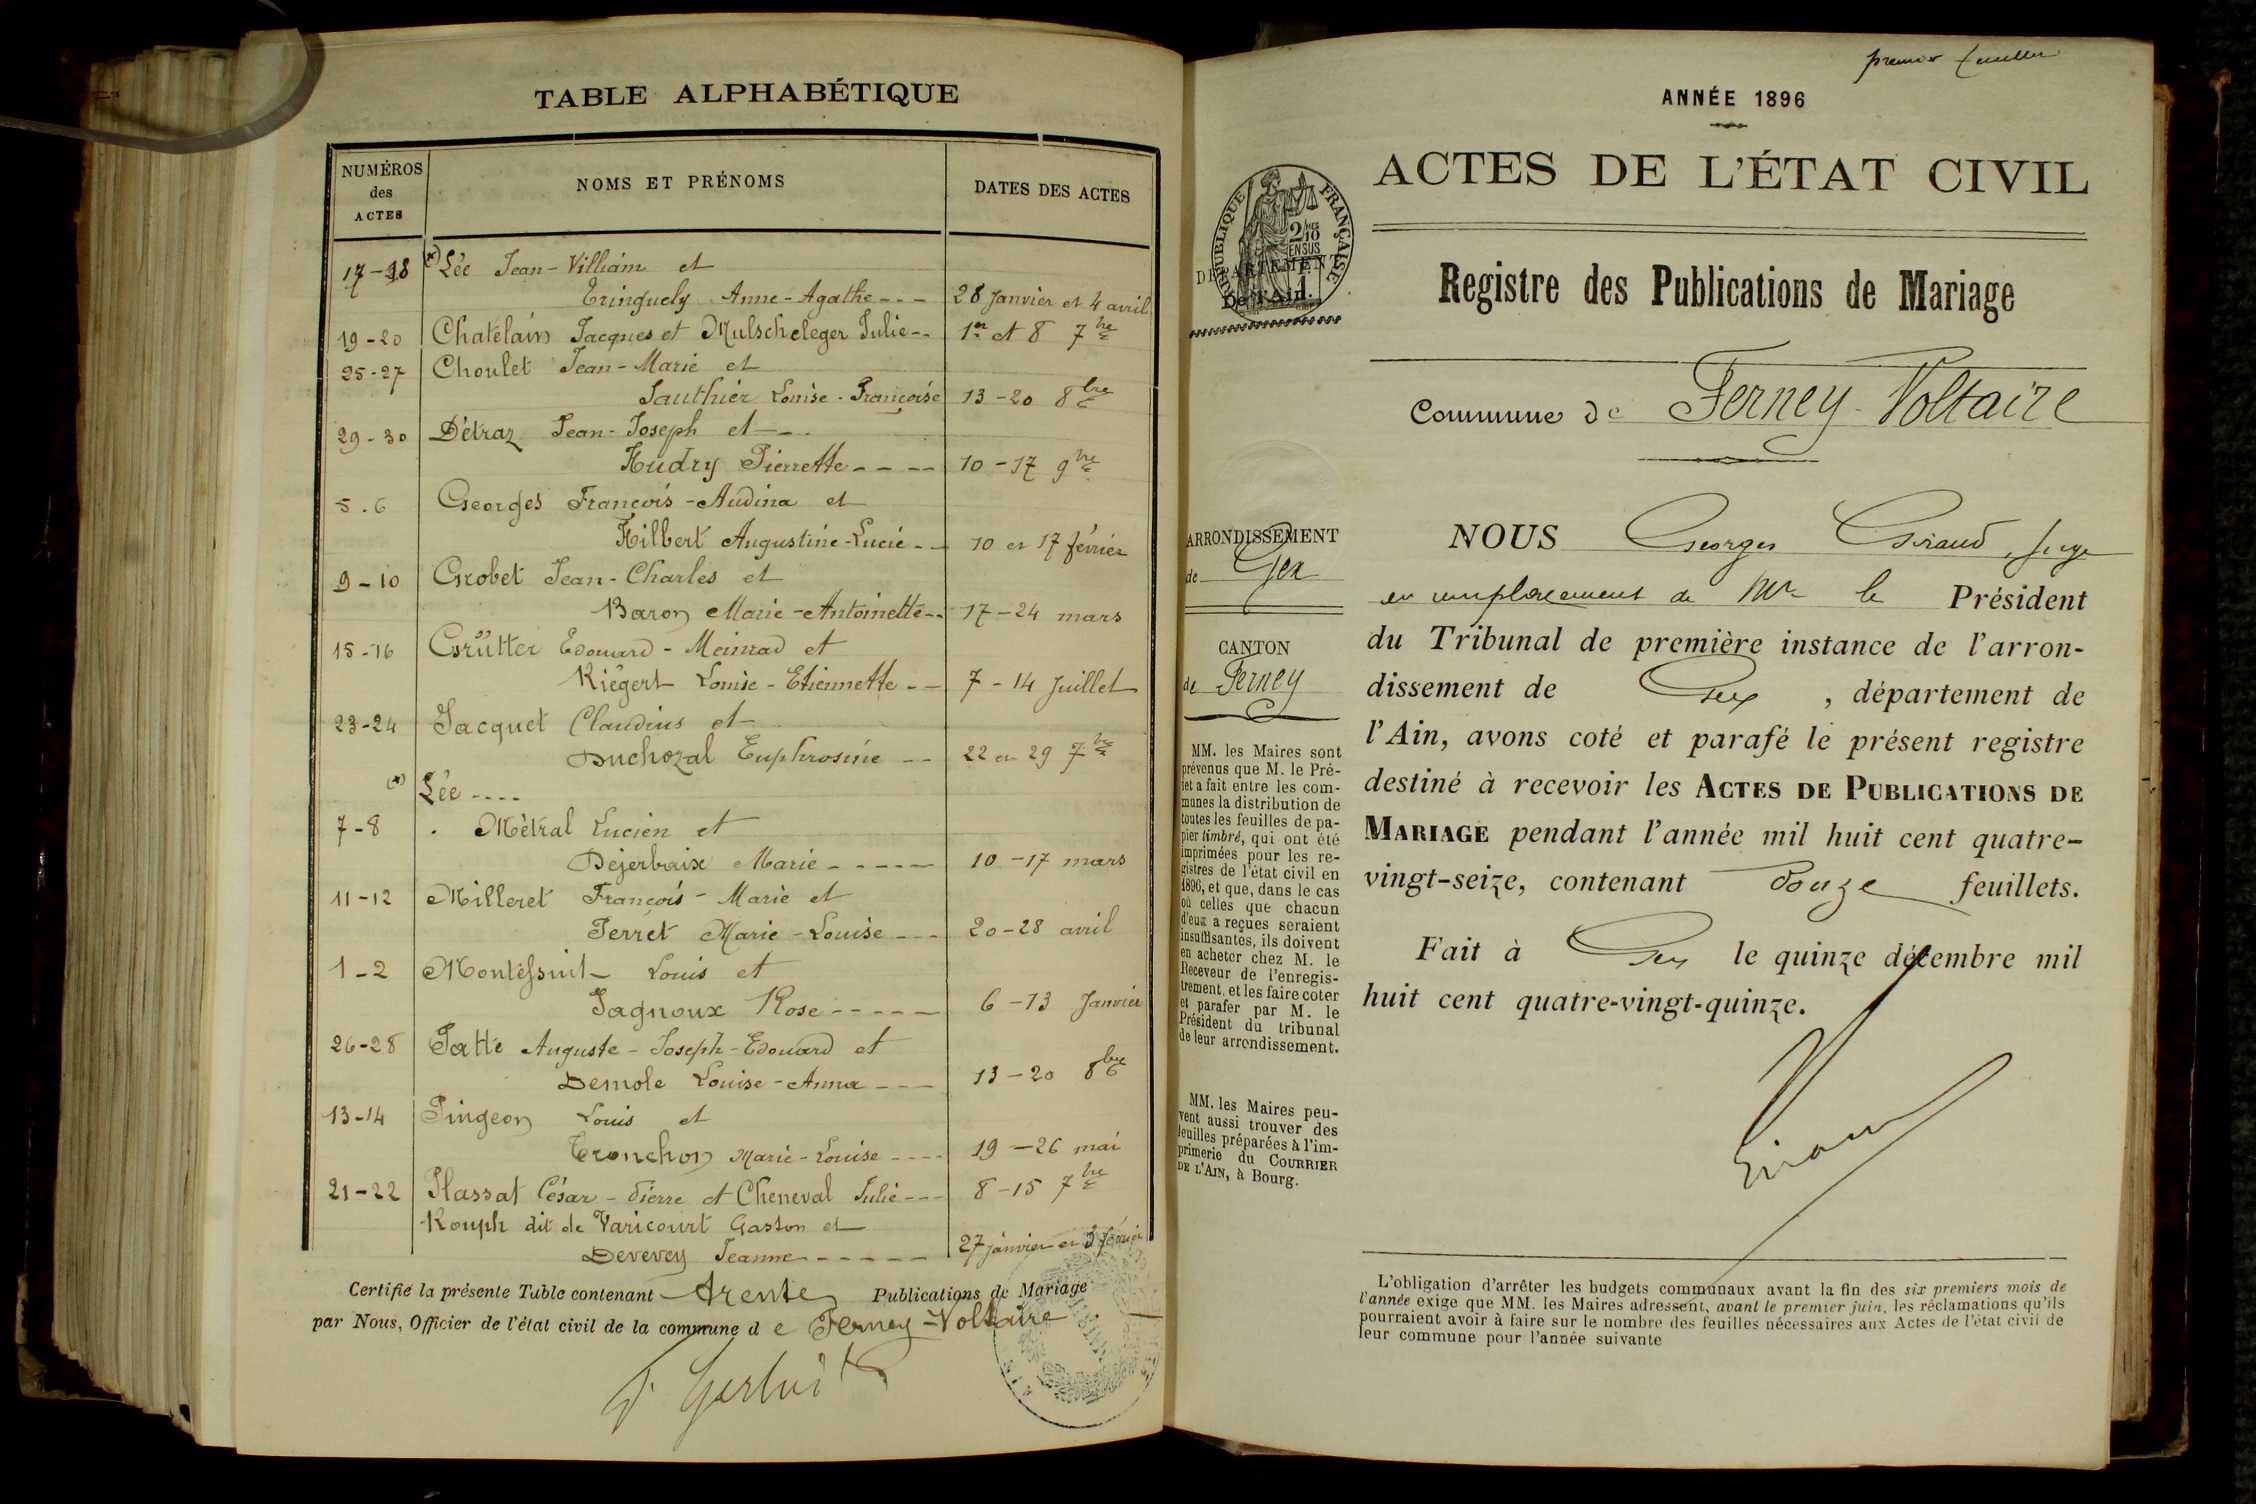 TABLE ALPHABÉTIQUE
NUMÉROS des ACTES
NOMS ET PRÉNOMS
DATES DES ACTES
17-18 (x) Lée Jean-Villiam et
Tringuely Anne-Agathe --- 28 Janvier et 4 avril
19-20 Chatelain Jacques et Mulscheleger Julie -- 1er et 8 7bre
25-27 Choulet Jean-Marie et
Gauthier Louise-Françoise 13-20 8bre
29-30 Détraz Jean-Joseph et --
Hudry Pierrette ---- 10-17 9bre
5.6 Georges François-Audina et
Hilbert Augustine-Lucie -- 10 et 17 février
9-10 Grobet Jean-Charles et
Baron Marie-Antoinette -- 17-24 mars
15-16 Grütter Edouard-Meinrad et
Riégert Louise-Etiennette -- 7-14 Juillet
23-24 Jacquet Claudius et
Duchozal Euphrosine -- 22 et 29 7bre
(x) Lée ----
7-8 Métral Lucien et
Dejerbaix Marie ----- 10-17 mars
11-12 Milleret François-Marie et
Ferret Marie-Louise --- 20-28 avril
1-2 Montéssuit Louis et
Jagnoux Rose ----- 6-13 Janvier
26-28 Patte Auguste-Joseph-Edouard et
Demole Louise-Anna --- 13-20 8bre
13-14 Pingeon Louis et
Tronchon Marie-Louise ---- 19-26 mai
21-22 Plassat César-Pierre et Cheneval Julie --- 8-15 7bre
Rouph dit de Varicourt Gaston et
Devevey Jeanne ----- 27 janvier et 3 février
Certifié la présente Table contenant trente Publications de Mariage
par Nous, Officier de l'état civil de la commune d e Ferney-Voltaire
premier feuillet
ANNÉE 1896
ACTES DE L'ÉTAT CIVIL
RÉPUBLIQUE FRANÇAISE
2 10es
EN SUS
DÉPARTEMENT
De l'Ain.
Registre des Publications de Mariage
Commune de Ferney-Voltaire
ARRONDISSEMENT
de Gex
CANTON
de Ferney
MM. les Maires sont
prévenus que M. le Pré-
fet a fait entre les com-
munes la distribution de
toutes les feuilles de pa-
pier timbré, qui ont été
imprimées pour les re-
gistres de l'état civil en
1896, et que, dans le cas
où celles que chacun
d'eux a reçues seraient
insuffisantes, ils doivent
en acheter chez M. le
Receveur de l'enregis-
trement, et les faire coter
et parafer par M. le
Président du tribunal
de leur arrondissement.
MM. les Maires peu-
vent aussi trouver des
feuilles préparées à l'im-
primerie du COURRIER
DE L'AIN, à Bourg.
NOUS Georges Giraud, Juge
en remplacement de Mr le Président
du Tribunal de première instance de l'arron-
dissement de Gex, département de
l'Ain, avons coté et parafé le présent registre
destiné à recevoir les ACTES DE PUBLICATIONS DE
MARIAGE pendant l'année mil huit cent quatre-
vingt-seize, contenant douze feuillets.
Fait à Gex le quinze décembre mil
huit cent quatre-vingt-quinze.
Giraud
L'obligation d'arrêter les budgets communaux avant la fin des six premiers mois de
l'année exige que MM. les Maires adressent, avant le premier juin, les réclamations qu'ils
pourraient avoir à faire sur le nombre des feuilles nécessaires aux Actes de l'état civil de
leur commune pour l'année suivante